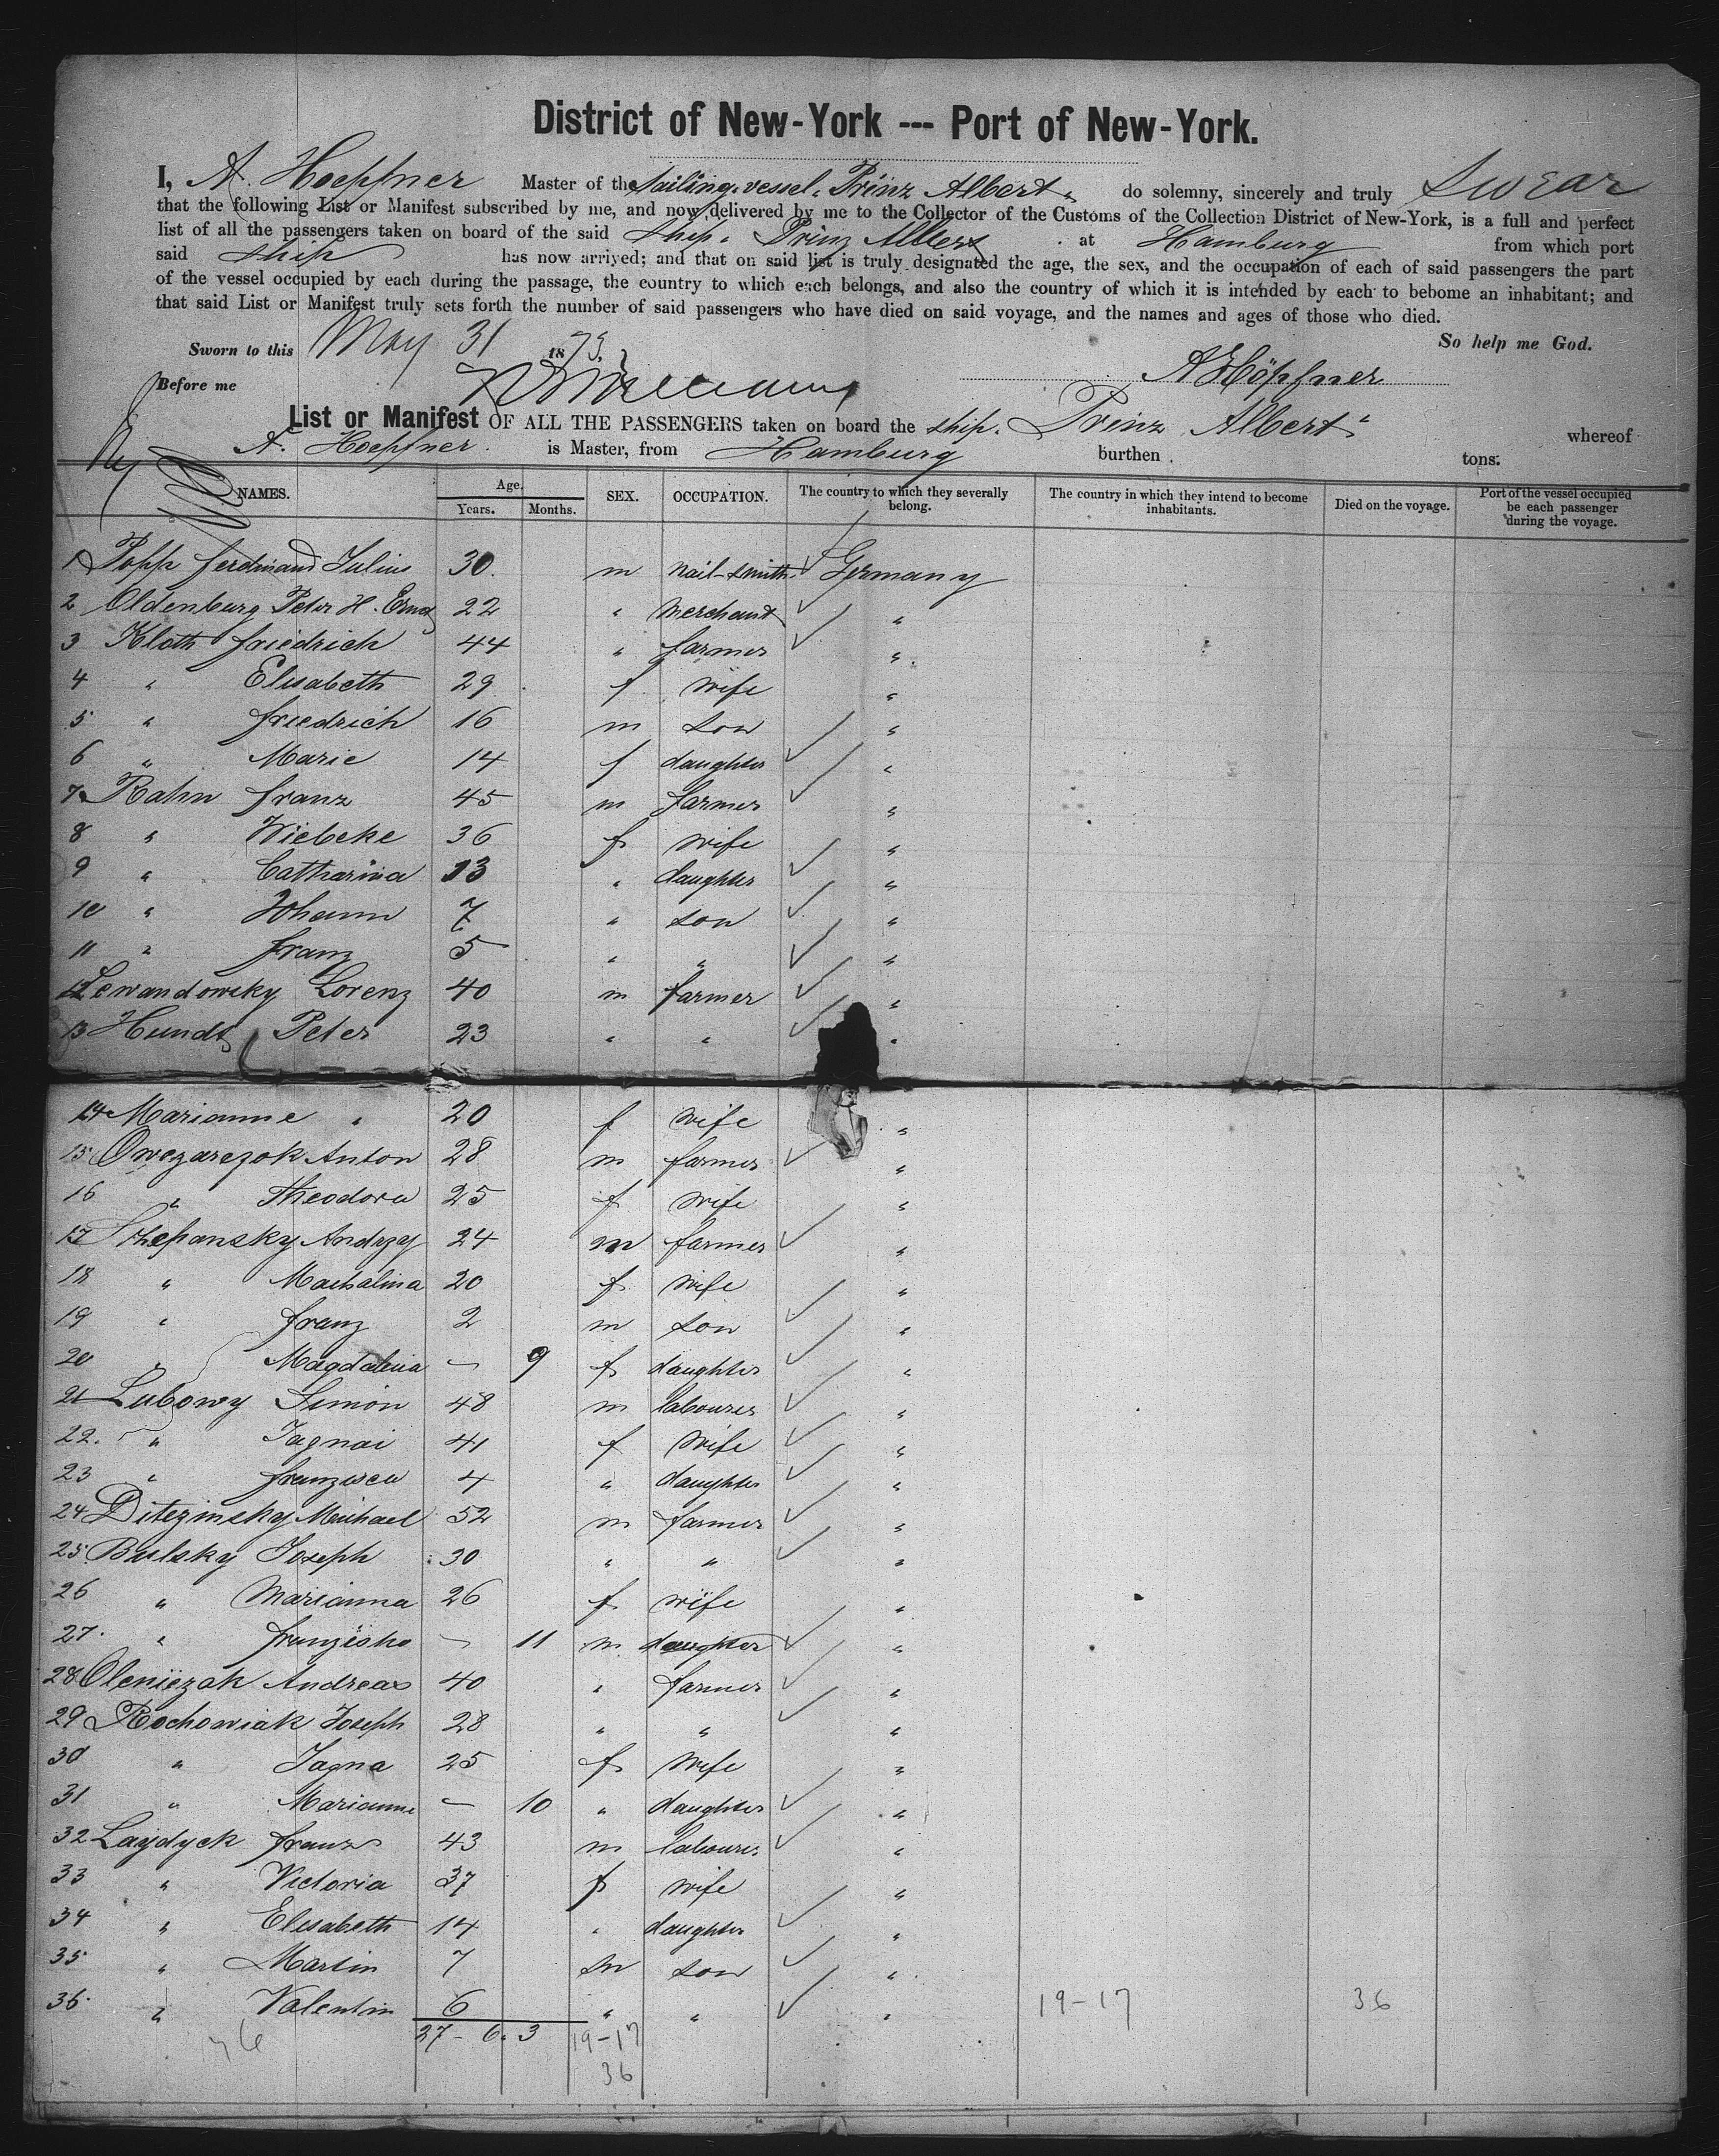 District of New-York --- Port of New-York.
I, A. Hoepfner Master of the Sailing-vessel „ Prinz Albert „ do solemny, sincerely and truly swear
that the following List or Manifest subscribed by me, and now delivered by me to the Collector of the Customs of the Collection District of New-York, is a full and perfect
list of all the passengers taken on board of the said ship „ Prinz Albert at Hamburg from which port
said ship has now arrived; and that on said list is truly designated the age, the sex, and the occupation of each of said passengers the part
of the vessel occupied by each during the passage, the country to which each belongs, and also the country of which it is intended by each to bebome an inhabitant; and
that said List or Manifest truly sets forth the number of said passengers who have died on said voyage, and the names and ages of those who died.
Sworn to this May 31 1873, So help me God.
Before me A Höpfner
List or Manifest OF ALL THE PASSENGERS taken on board the ship „ Prinz Albert " whereof
A. Hoepfner is Master, from Hamburg burthen tons.
NAMES. Age. Years. Months. SEX. OCCUPATION. The country to which they severally belong. The country in which they intend to become inhabitants. Died on the voyage. Port of the vessel occupied be each passenger during the voyage.
1 Popp Ferdinand Julius 30. m nail-smith Germany
2 Oldenburg Peter H. Ernst 22 " merchant "
3 Kloth Friedrich 44 " farmer "
4 " Elisabeth 29 f wife "
5 " Friedrich 16 m son "
6 " Marie 14 f daughter "
7 Rahn Franz 45 m farmer "
8 " Wiebeke 36 f wife "
9 " Catharina 13 " daughter "
10 " Johann 7 " son "
11 " Franz 5 " " "
12 Lewandowsky Lorenz 40 m farmer "
13 Hundt Peter 23 " " "
14 Marianne " 20 f wife "
15 Owczarezok Anton 28 m farmer "
16 " Theodora 25 f wife "
17 Sthepansky Andrzy 24 m farmer "
18 " Machalina 20 f wife "
19 " Franz 2 m son "
20 " Magdalena — 9 f daughter "
21 Lubowy Simon 48 m labourer "
22. " Jagnai 41 f wife "
23 " Franzisca 4 " daughter "
24 Ditezinsky Michael 52 m farmer "
25 Bulsky Joseph 30 " " "
26 " Marianna 26 f wife "
27. " Franzisko — 11 m daughter "
28 Oleniezak Andreas 40 " farmer "
29 Rochowiak Joseph 28 " " "
30 " Jagna 25 f wife "
31 " Marianne — 10 " daughter "
32 Laydyck Franz 43 m labourer "
33 " Victoria 37 f wife "
34 " Elisabeth 14 " daughter "
35 " Martin 7 m son "
36. " Valentin 6 " " " 19-17 36
27 - 6. 3 19-17
36